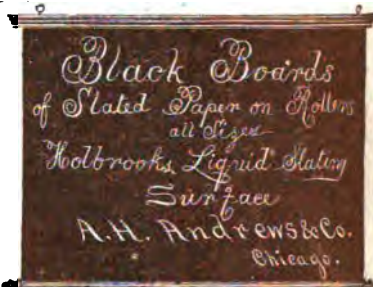 Black Boards
of Slated Paper on Rollers
all Sizes
Holbrooks Liquid Slating
Surface
A.H. Andrews & Co.
Chicago.